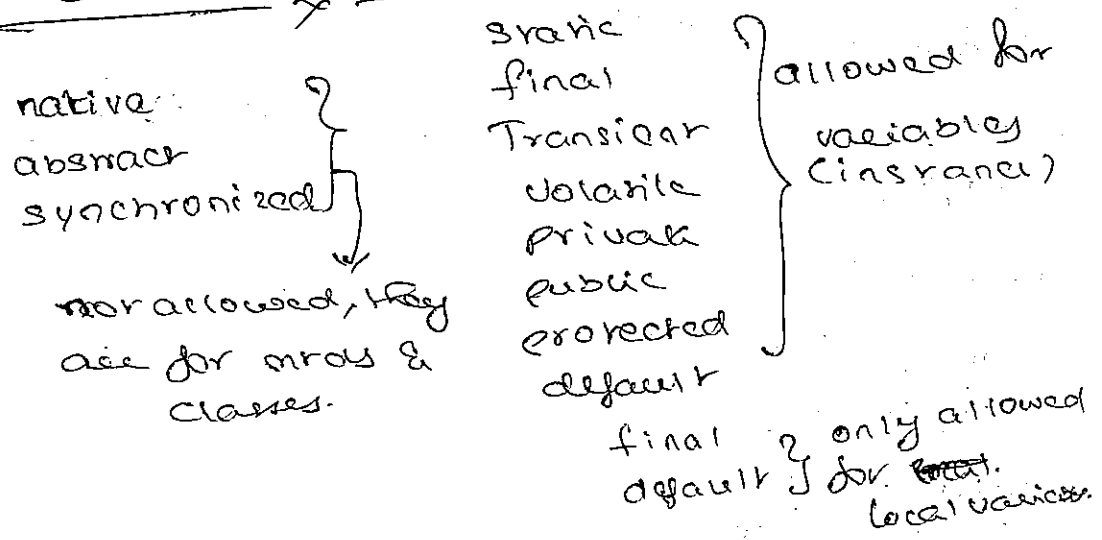 native
abstract
synchronized
not allowed, they
are for mtds &
classes.
static
final
Transient
volatile
private
public
protected
default
allowed for
variables
(instance)
final
default
only allowed
for
local variables.